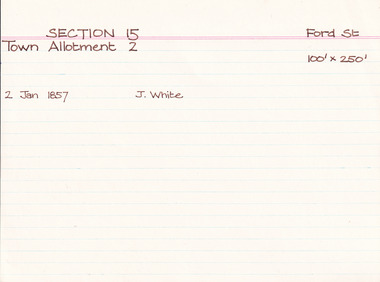 SECTION 15 Ford St
Town Allotment 2
100' x 250'
2 Jan 1857 J. White